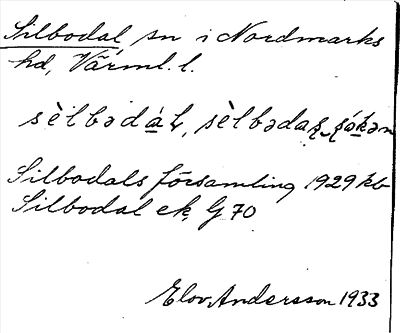 Silbodal sn i Nordmarks
hd, Värml. l.
sèlbədáL, sèlbədaʂ ʂókən
Silbodals församling 1929 kb
Silbodal ek. G 70
Elov. Andersson 1933